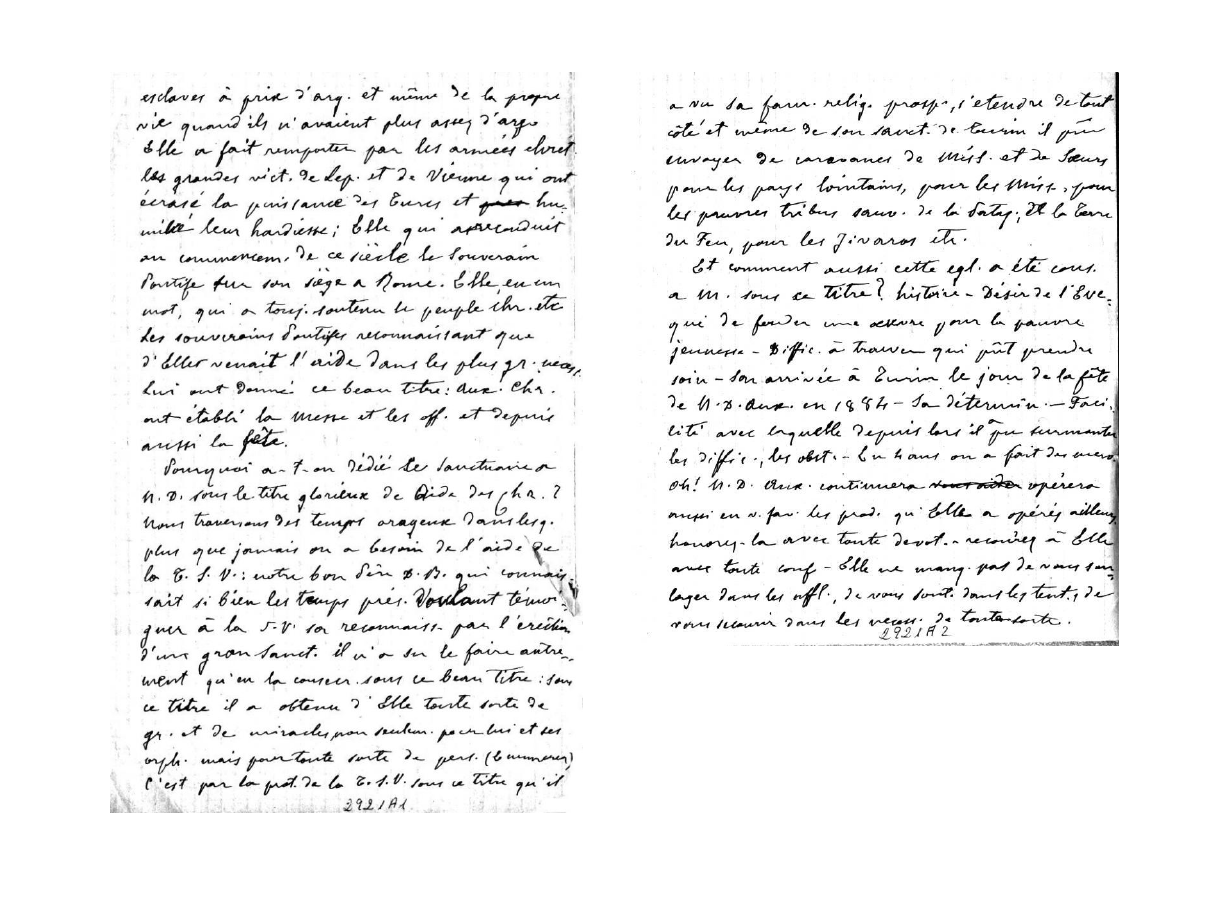 esclaves à prix d'arg. et même de la propre
vie quand ils n'avaient plus assez d'arg.
Elle a fait remporter par les armées chrét.
les grandes vict. de Lep. et de Vienne qui ont
écrasé la puissance des Turcs et hu-
milié leur hardiesse; Elle qui a reconduit
au commencem. de ce siècle le Souverain
Pontife sur son siège a Rome. Elle, en un
mot, qui a touj. soutenu le peuple chr. etc
Les souverains Pontifes reconnaissant que
d'Elle venait l'aide dans les plus gr. necess.
Lui ont donné ce beau titre: Aux. Chr.
ont établi la Messe et les off. et depuis
aussi la fête.
Pourquoi a-t-on dédié le Sanctuaire a
N. D. sous le titre glorieux de Aide des Chr.?
Nous traversons des temps orageux dans lesq.
plus que jamais on a besoin de l'aide de
la T. S. V.: notre bon Père D. B. qui connais-
sait si bien les temps prés. Voulant témoi-
gner à la S. V. sa reconnaiss. par l'erection
d'une gran Sanct. il n'a su le faire autre-
ment qu'en la consacr. sous ce beau titre: sous
ce titre il a obtenu d'Elle toute sorte de
gr. et de miracles, non seulem. pour lui et ses
orph. mais pour toute sorte de pers. (Enumerer)
C'est par la prot. de la T. S. V. sous ce titre qu'il
2921A1
a vu sa fam. relig. prosp., s'etendre de tout
côté et même de son sanct. de Turin il pût
envoyer de caravanes de Miss. et de Sœurs
pour les pays lointains, pour les Miss., pour
les pauvres tribus sauv. de la Patag., de la Terre
du Feu, pour les Jivaros etc.
Et comment aussi cette egl. a été cons.
a M. sous ce titre? histoire - Désir de l'Eve-
que de fonder une œuvre pour la pauvre
jeunesse - Diffic. à trouver qui pût prendre
soin - Son arrivée à Turin le jour de la fête
de N. D. Aux. en 1884 - Sa détermin. - Faci-
lité avec laquelle depuis lors il a pu surmonter
les diffic., les obst. - En 4 ans on a fait des merv.
Oh! N. D. Aux. continuera opérera
aussi en v. fav. les prod. qu'Elle a opérés ailleurs,
honorez-la avec toute devot. - recourez à Elle
avec toute conf - Elle ne manq. pas de vous sou-
lager dans les affl., de vous sout. dans les tent., de
vous secourir dans les necess. de toute sorte.
2921A2